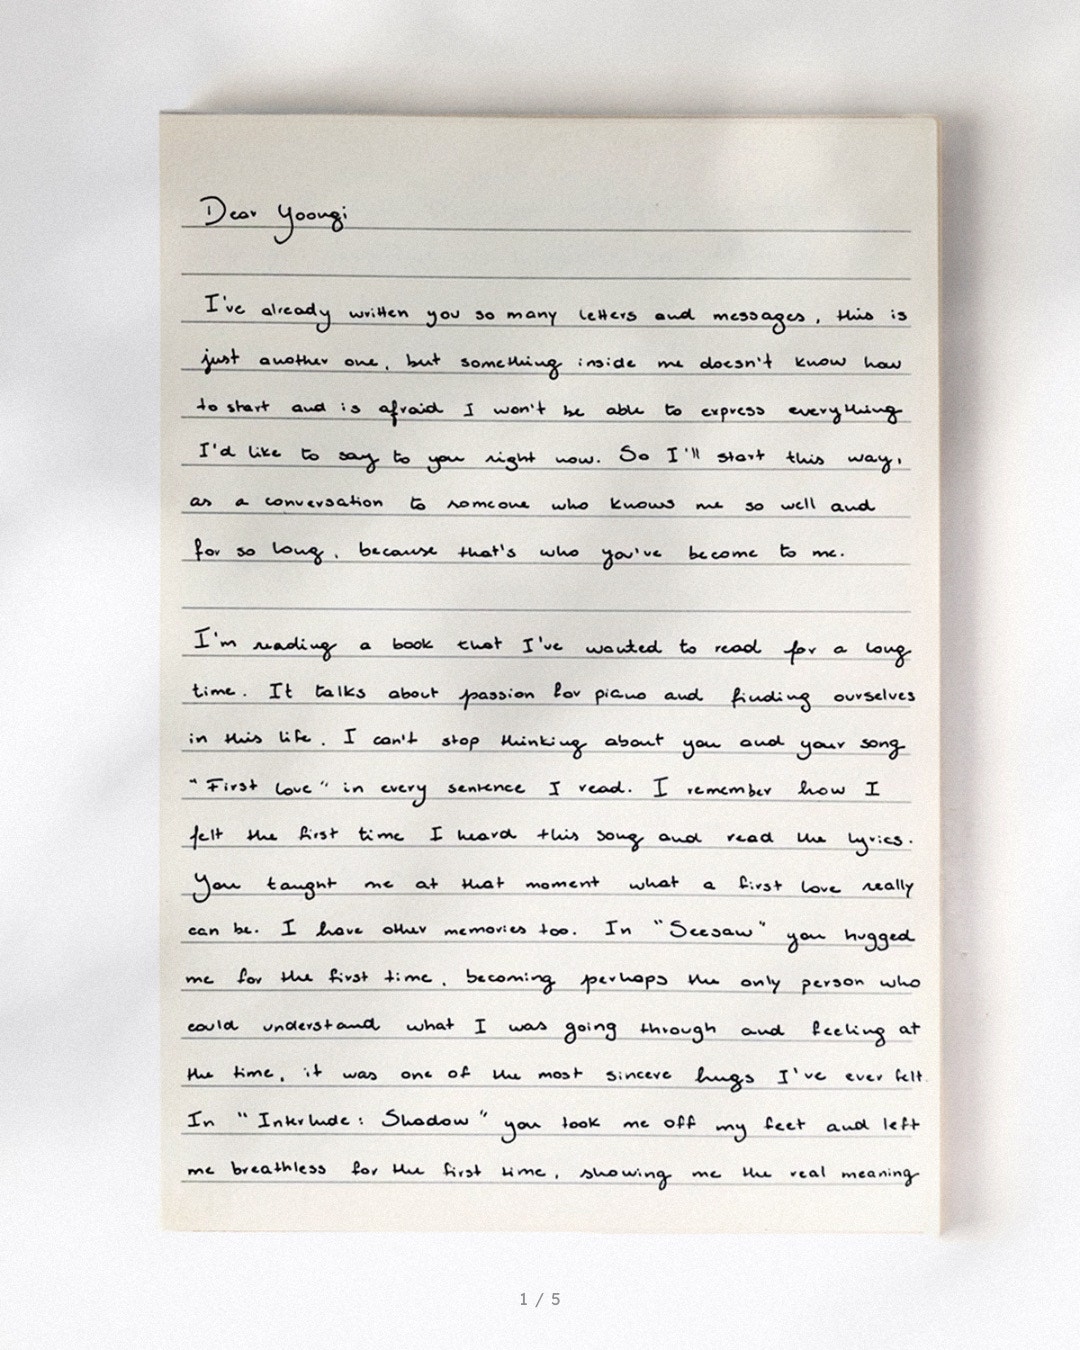 Dear Yoongi
I've already written you so many letters and messages, this is
just another one, but something inside me doesn't know how
to start and is afraid I won't be able to express everything
I'd like to say to you right now. So I'll start this way,
as a conversation to someone who knows me so well and
for so long, because that's who you've become to me.
I'm reading a book that I've wanted to read for a long
time. It talks about passion for piano and finding ourselves
in this life. I can't stop thinking about you and your song
"First love" in every sentence I read. I remember how I
felt the first time I heard this song and read the lyrics.
You taught me at that moment what a first love really
can be. I have other memories too. In "Seesaw" you hugged
me for the first time, becoming perhaps the only person who
could understand what I was going through and feeling at
the time, it was one of the most sincere hugs I've ever felt.
In "Interlude: Shadow" you took me off my feet and left
me breathless for the first time, showing me the real meaning
1 / 5